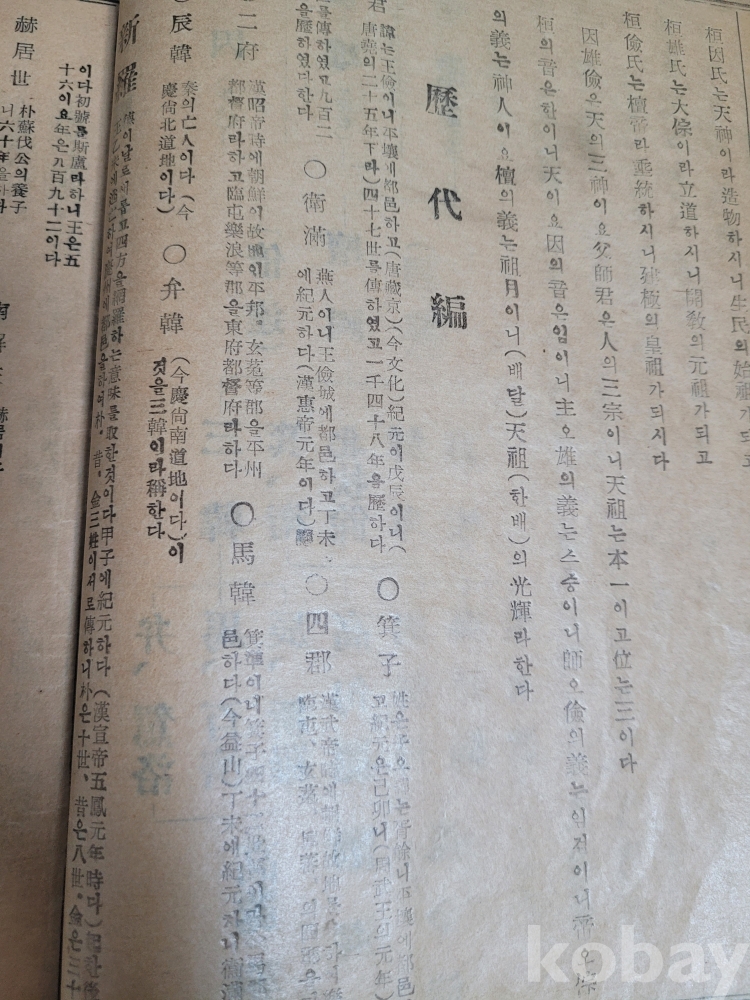 桓因氏는天神이라造物하시니生民의始祖가되고
桓雄氏는大倧이라立道하시니開敎의元祖가되고
桓儉氏는檀帝라垂統하시니建極의皇祖가되시다
因雄儉은天의三神이요父師君은人의三宗이니天祖는本一이고位는三이다
桓의音은한이니天이요因의音은임이니主오雄의義는스승이니師오儉의義는임저이니帝오
의義는神人이요檀의義는祖月이니(배달)天祖(한배)의光輝라한다
歷代編
君
諱는王儉이니平壤에都邑하고(唐藏京)(今文化)紀元이戊辰이니(
唐堯의二十五年下라)四十七世를傳하였고一千四十八年을歷하다
○箕子
고紀元은己卯니(周武王의元年)
을傳하였고九百二
을歷하였다한다
○衛滿
燕人이니王儉城에都邑하고丁未
에紀元하다(漢惠帝元年이다)
○四郡
二府
漢昭帝時에朝鮮이故
平那、玄菟等郡을平州
都督府라하고臨屯樂浪等郡을東府都督府라하다
○馬韓
邑하다(今益山)丁未에紀元
辰韓
秦의亡人이다(今
慶尙北道地이다)
○弁韓
(今慶尙南道地이다)이
것을三韓이라稱한다
新羅
四方을網羅하는意味를取한것이다甲子에紀元하다(漢宣帝五鳳元年時다)
朴、昔、金三姓이서로傳하니朴은十世、昔은八世、金은三十
이다初號를斯盧라하니王은五
十六이요年은九百九十二이다
赫居世
朴蘇伐公의養子
니六十年을하다
kobay